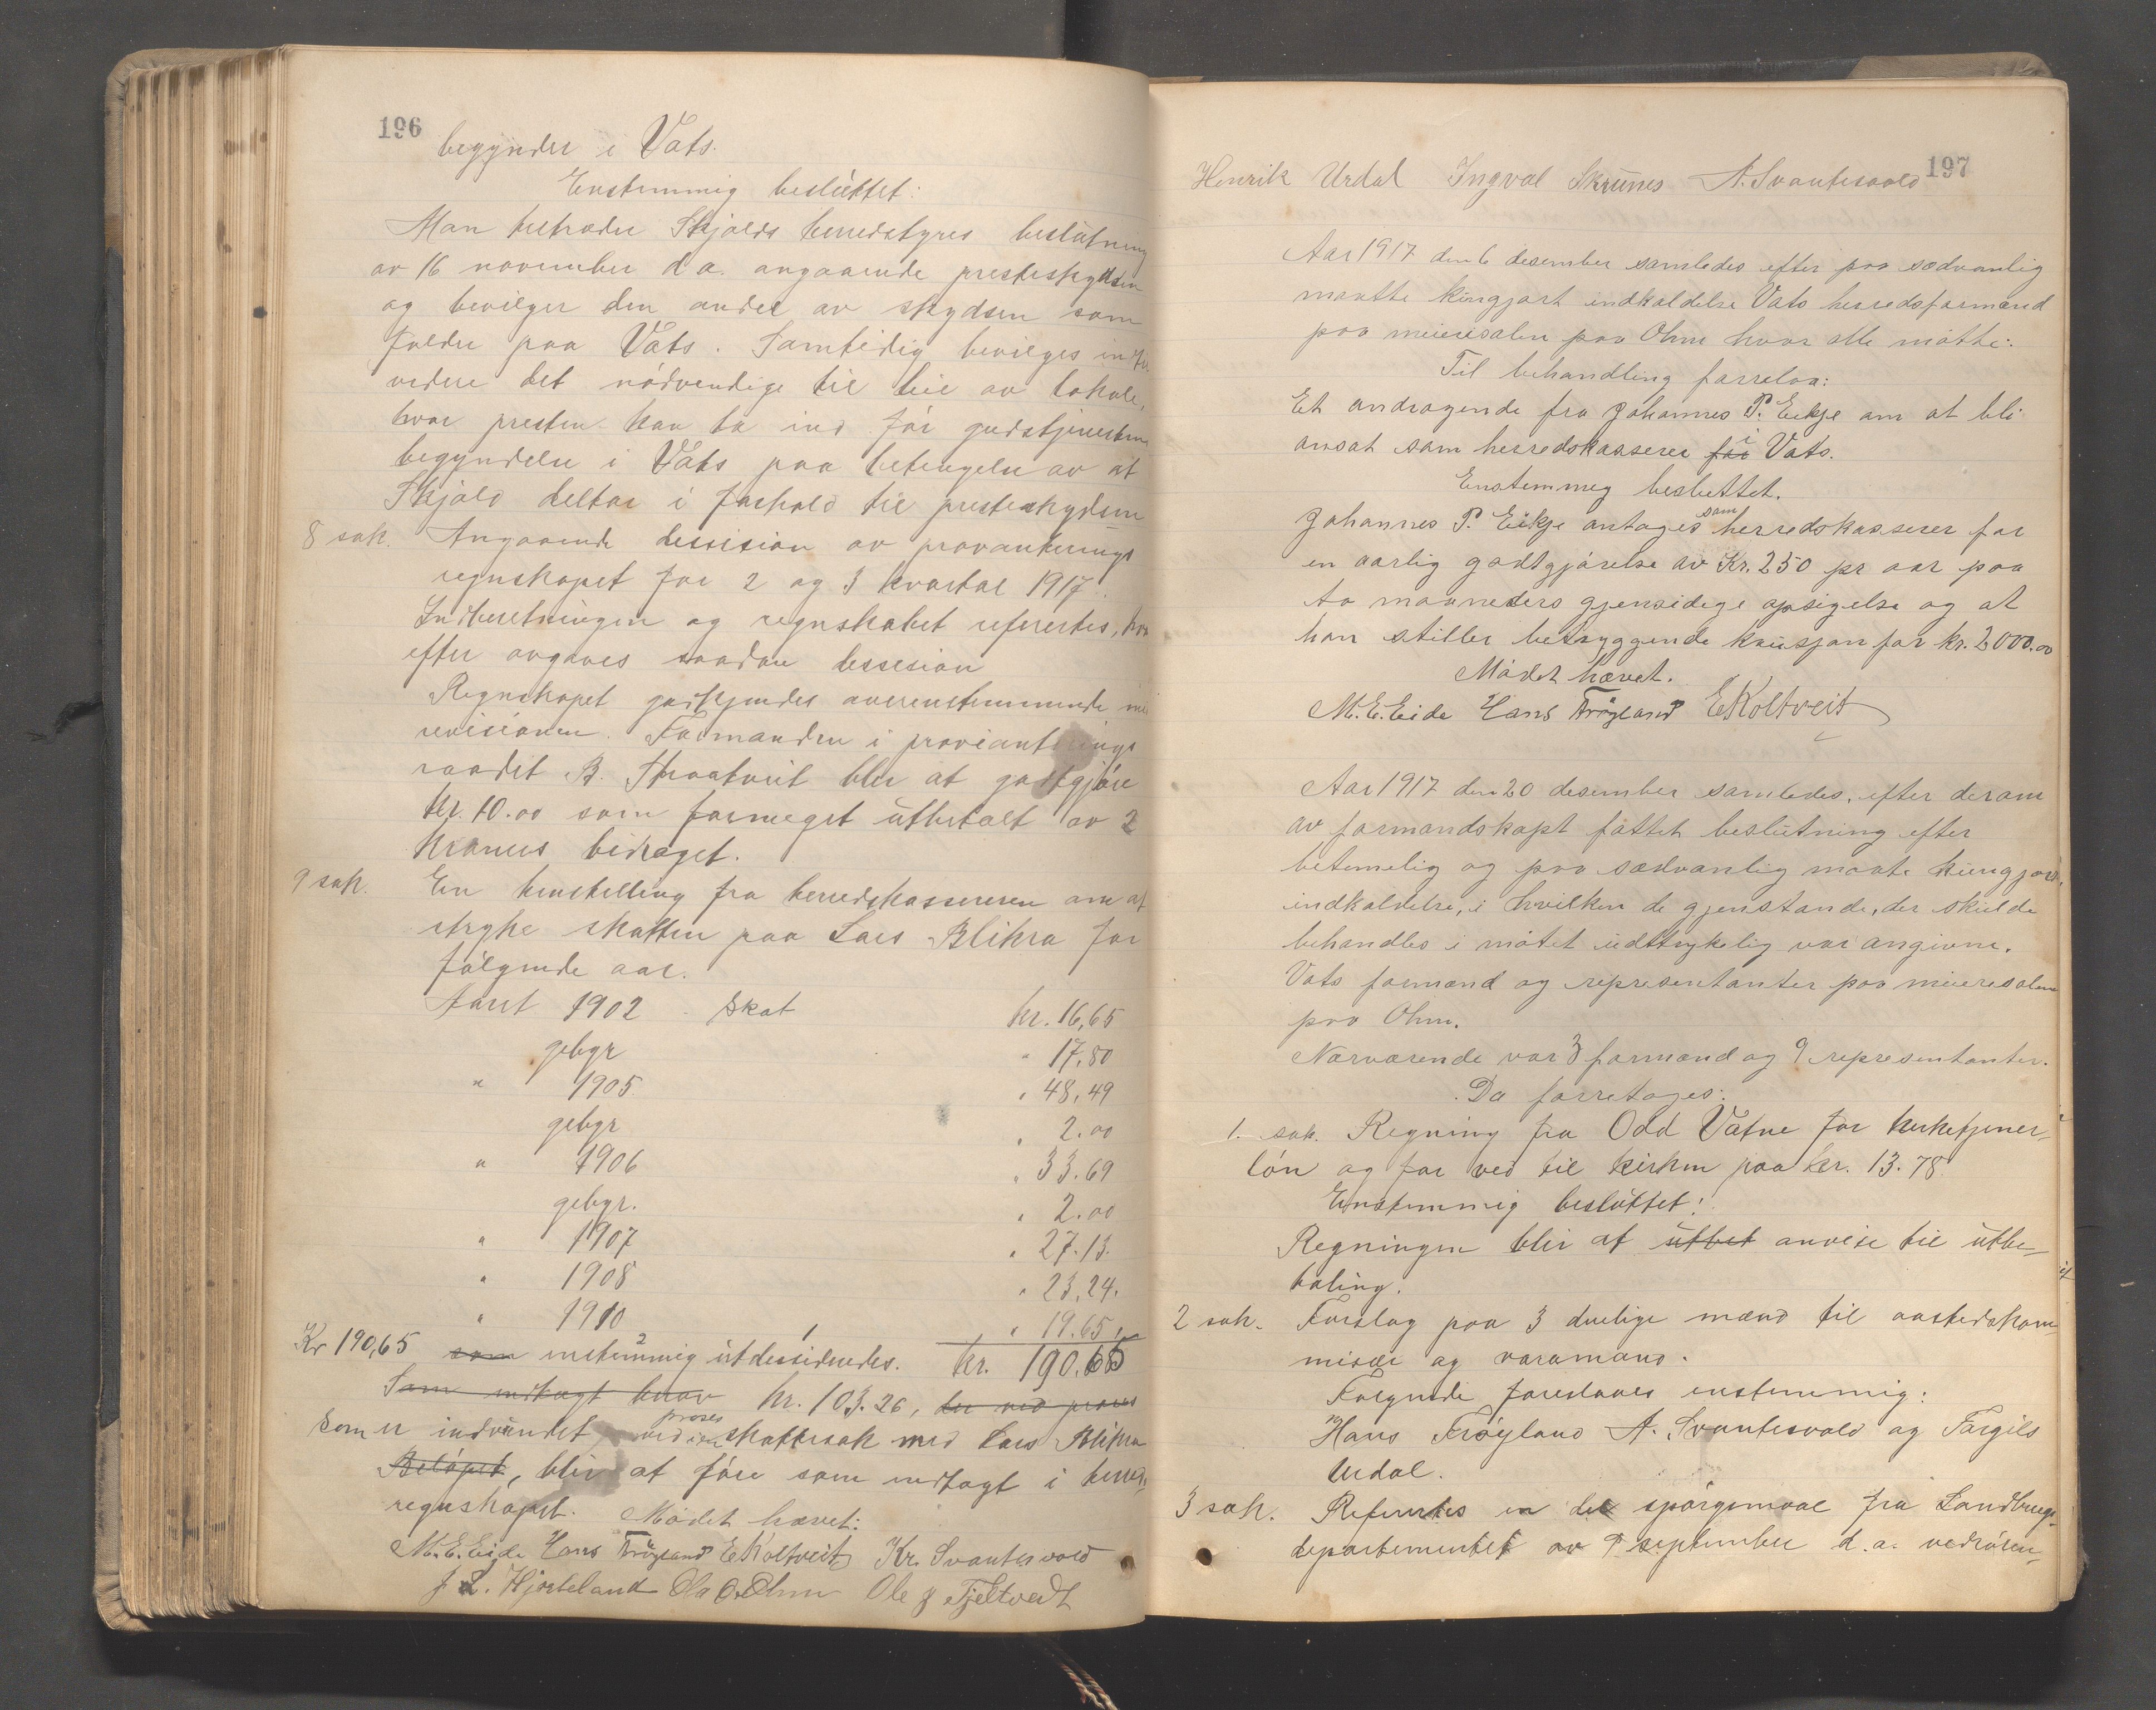 196
begynder i Vats.
Enstemmig besluttet:
Man tiltræder Skjolds herredstyres beslutning
av 16 november d.a. angaaende presteskydsen
og beviliger den andel av skydsen som
falder paa Vats. Samtidig bevilges
videre det nödvendige til leie av lokale,
hvor presten kan ta ind för gudstjenestens
begyndelse i Vats paa betingelse av at
Skjold deltar i forhold til presteskydsen
8 sak. Angaaende dessision av provianterings
regnskapet for 2 og 3 kvartal 1917.
Indberetningen og regnskabet refereertes, hvor
efter avgaves saadan dessesion
Regnskapet godkjendes overenstemmende med
revisionen. Formanden i provianterings
raadet B. Straatveit blir at godtgjöre
Kr. 10.00 som formeget utbetalt av 2
kroners bidraget.
9 sak. En henstelling fra herredskassereren om at
stryke skatten paa Lars Blikra for
fölgende aar.
Aaret 1902 skat kr. 16,65
gebyr " 17,80
" 1905 " 48,49
gebyr " 2.00
" 1906 " 33.69
gebyr. " 2.00
" 1907 " 27.13.
" 1908 " 23.24.
" 1910 " 19.65
Kr 190,65 som enstemmig utdessideredes. kr. 190.65
Som indtægt kr. 103.26, der ved proces
som er indvundet ved proses skattesak med Lars Blikra
Belöpet, blir at före som indtægt i herreds
regnskapet. Mödet hævet:
M. E. Eide Hans Fröyland E Koltveit Kr. Svantesvold
J L. Hjorteland Ola O. Ohm Ole J Fjeltvedt
197
Henrik Urdal Ingval Skrunes A. Svantesvold
Aar 1917 den 6 desember samledes efter paa sædvanlig
maatte kungjort indkaldelse Vats herredsformænd
paa meierisalen paa Ohm hvor alle mötte:
Til behandling forrelaa:
Et andragende fra Johannes P. Eikje om at bli
ansat som herredskasserer for i Vats.
Enstemmeg besluttet.
Johannes P. Eikje antages som herredskasserer for
en aarlig godtgjörelse av Kr. 250 pr aar paa
to maaneders gjensidege opsigelse og at
han stiller betryggende kausjon for kr. 2000.00
Mödet hævet.
M. E. Eide Hans Fröyland E Koltveit
Aar 1917 den 20 desember samledes, efter derom
av formandskapt fattet beslutning efter
betemelig og paa sædvanlig maate kungjort
indkaldelse, i hvilken de gjenstande, der skulde
behandles i mötet udttrykelig var angivne.
Vats formænd og representanter paa meieresalen
paa Ohm.
Nærværende var 3 formænd og 9 representanter.
Da forretoges:
1. sak. Regning fra Odd Vatne for kirketjener-
lön og for ved til kirken paa kr. 13.78.
Enstemmig besluttet:
Regningen blir at utbet anvise til utbe-
taling.
2 sak. Forslag paa 3 duelige mænd til aastedskom-
misær og varamand.
Fölgende foreslaaes enstemmig:
Hans Fröyland A. Svantesvold og Torgils
Urdal.
3 sak. Refereertes en del spörgsmaal fra Landbrugs-
departementet av 9 september d.a. vedrören-